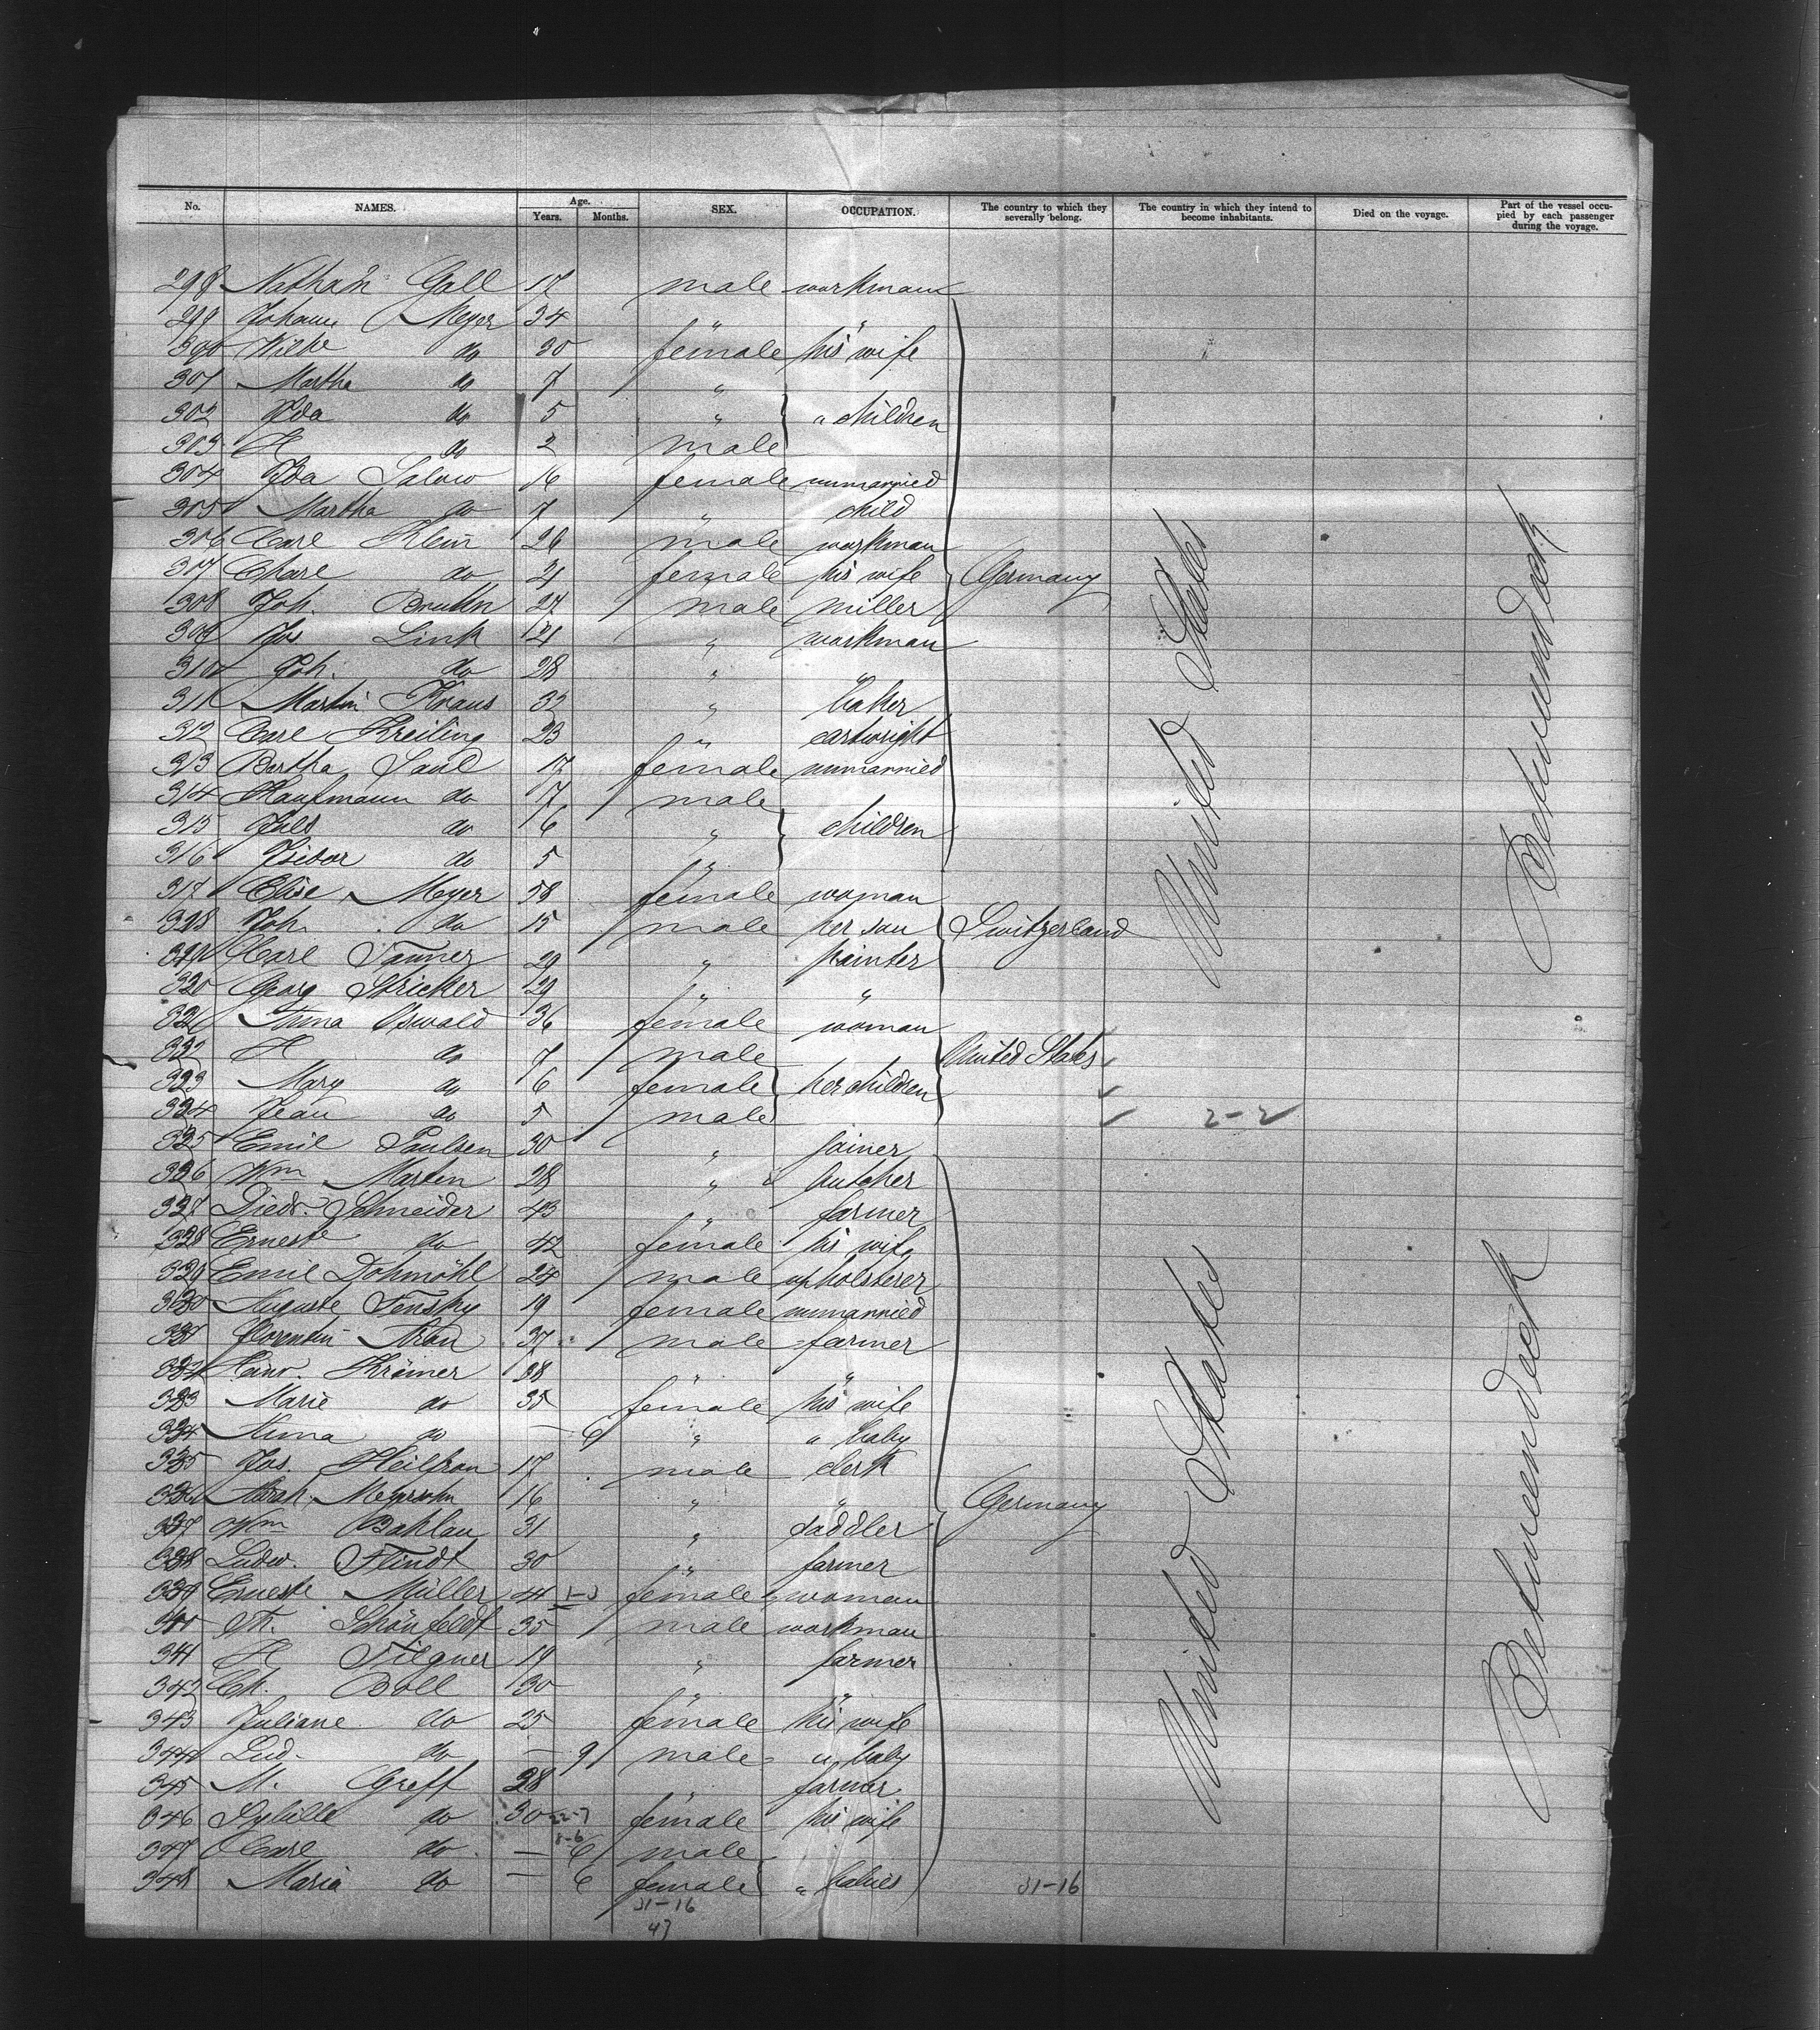 No. NAMES. Age. Years. Months. SEX. OCCUPATION. The country to which they severally belong. The country in which they intend to become inhabitants. Died on the voyage. Part of the vessel occupied by each passenger during the voyage.
298 Nathan Gall 17 male workman
299 Johann Meyer 34 " "
300 Wilhe do 30 female his wife
301 Martha do 7 "
302 Ida do 5 " " children
303 H do 2 male
304 Ida Salow 16 female unmarried
305 Martha do 7 " child
306 Carl Klein 26 male workman
307 do 21 female his wife Germany
308 Joh. Bruhn 27 male miller
309 Jos Link 21 " workman
310 Joh. do 28 " "
311 Martin Kraus 32 " baker
312 Carl Kreiling 23 " cartwright
313 Bertha Saul 17 female unmarried
314 Kaufmann do 7 male
315 Juls do 6 " children
316 Isidor do 5 "
317 Elise Meyer 58 female woman
318 Joh. do 15 male her son Switzerland
319 Carl Tanner 29 " painter
320 Georg Stricker 29 " "
321 Anna Oswald 36 female woman
322 H do 7 male United States
323 Mary do 6 female her children
324 Jean do 5 male 2-2
325 Emil Paulsen 30 " joiner
326 Wm Martin 28 " butcher
327 Diedr. Schneider 43 " farmer
328 Ernest do 42 female his wife
329 Emil Dohmöhl 24 male upholsterer
330 Auguste Tensky 19 female unmarried
331 37 male farmer
332 Heinr. Krämer 38 " "
333 Marie do 35 female his wife
334 Anna do — 6 " " baby
335 Jos. Heilfron 17 male clerk
336 Abrah. Meyersohn 16 " " Germany
337 Wm Bahlau 31 " saddler
338 Ludw. Flindt 30 " farmer
339 Ernest Müller 41 1-3 female woman
340 Th. Schönfeldt 35 male workman
341 H Tilgner 19 " farmer
342 Ch. Boll 30 " "
343 Juliane do 25 female his wife
344 Lud. do — 9 male " baby
345 M. Greff 38 " farmer
346 Sybilla do 30 22-7 female his wife
347 Carl do — 8-6 6 male
348 Maria do — 6 female " babies 31-16
31-16
47
United States
Betweendeck
United States
Betweendeck